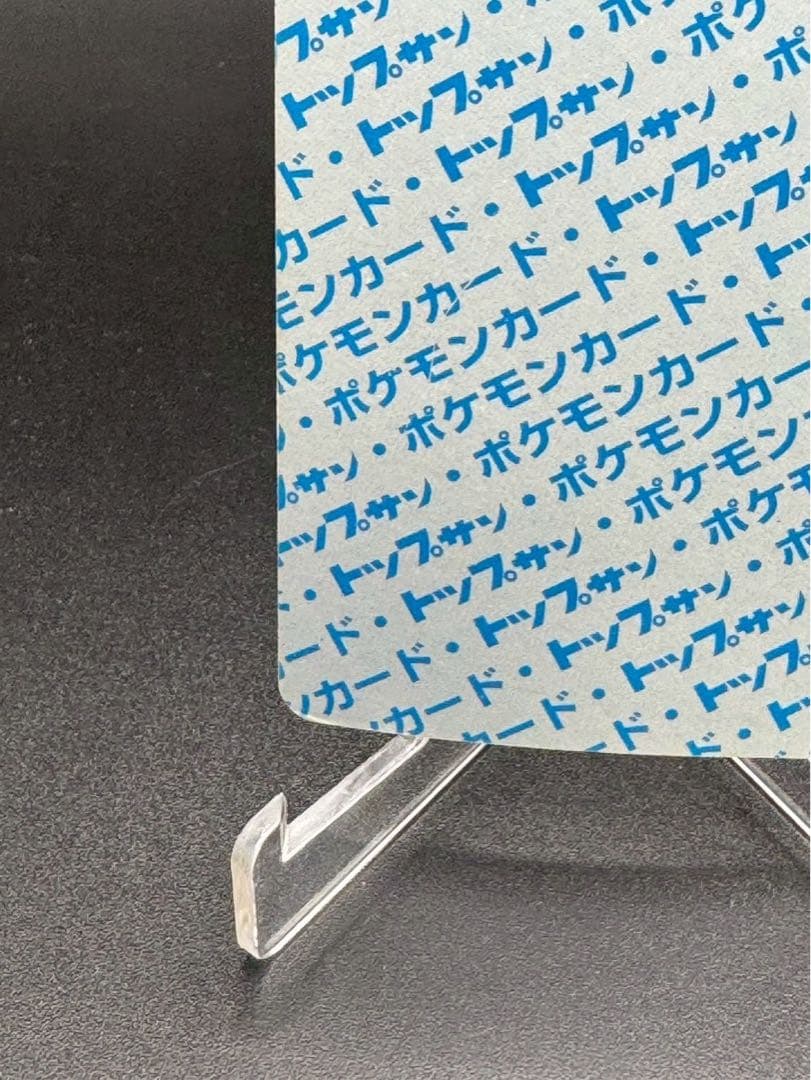 プサン
トップサン・
ド・トップサン・ポ
カード・トップサン・ポケ
モンカード・トップサン・ポ
ポケモンカード・トップサン
・ポケモンカード・トップ
プサン・ポケモンカード・ト
トップサン・ポケモンカード・
・トップサン・ポケモンカー
カード・トップサン・ポケモン
ンカード・トップサン・ポケモ
カード・トップサン・ポ
ド・トップサン
・トップ
ト